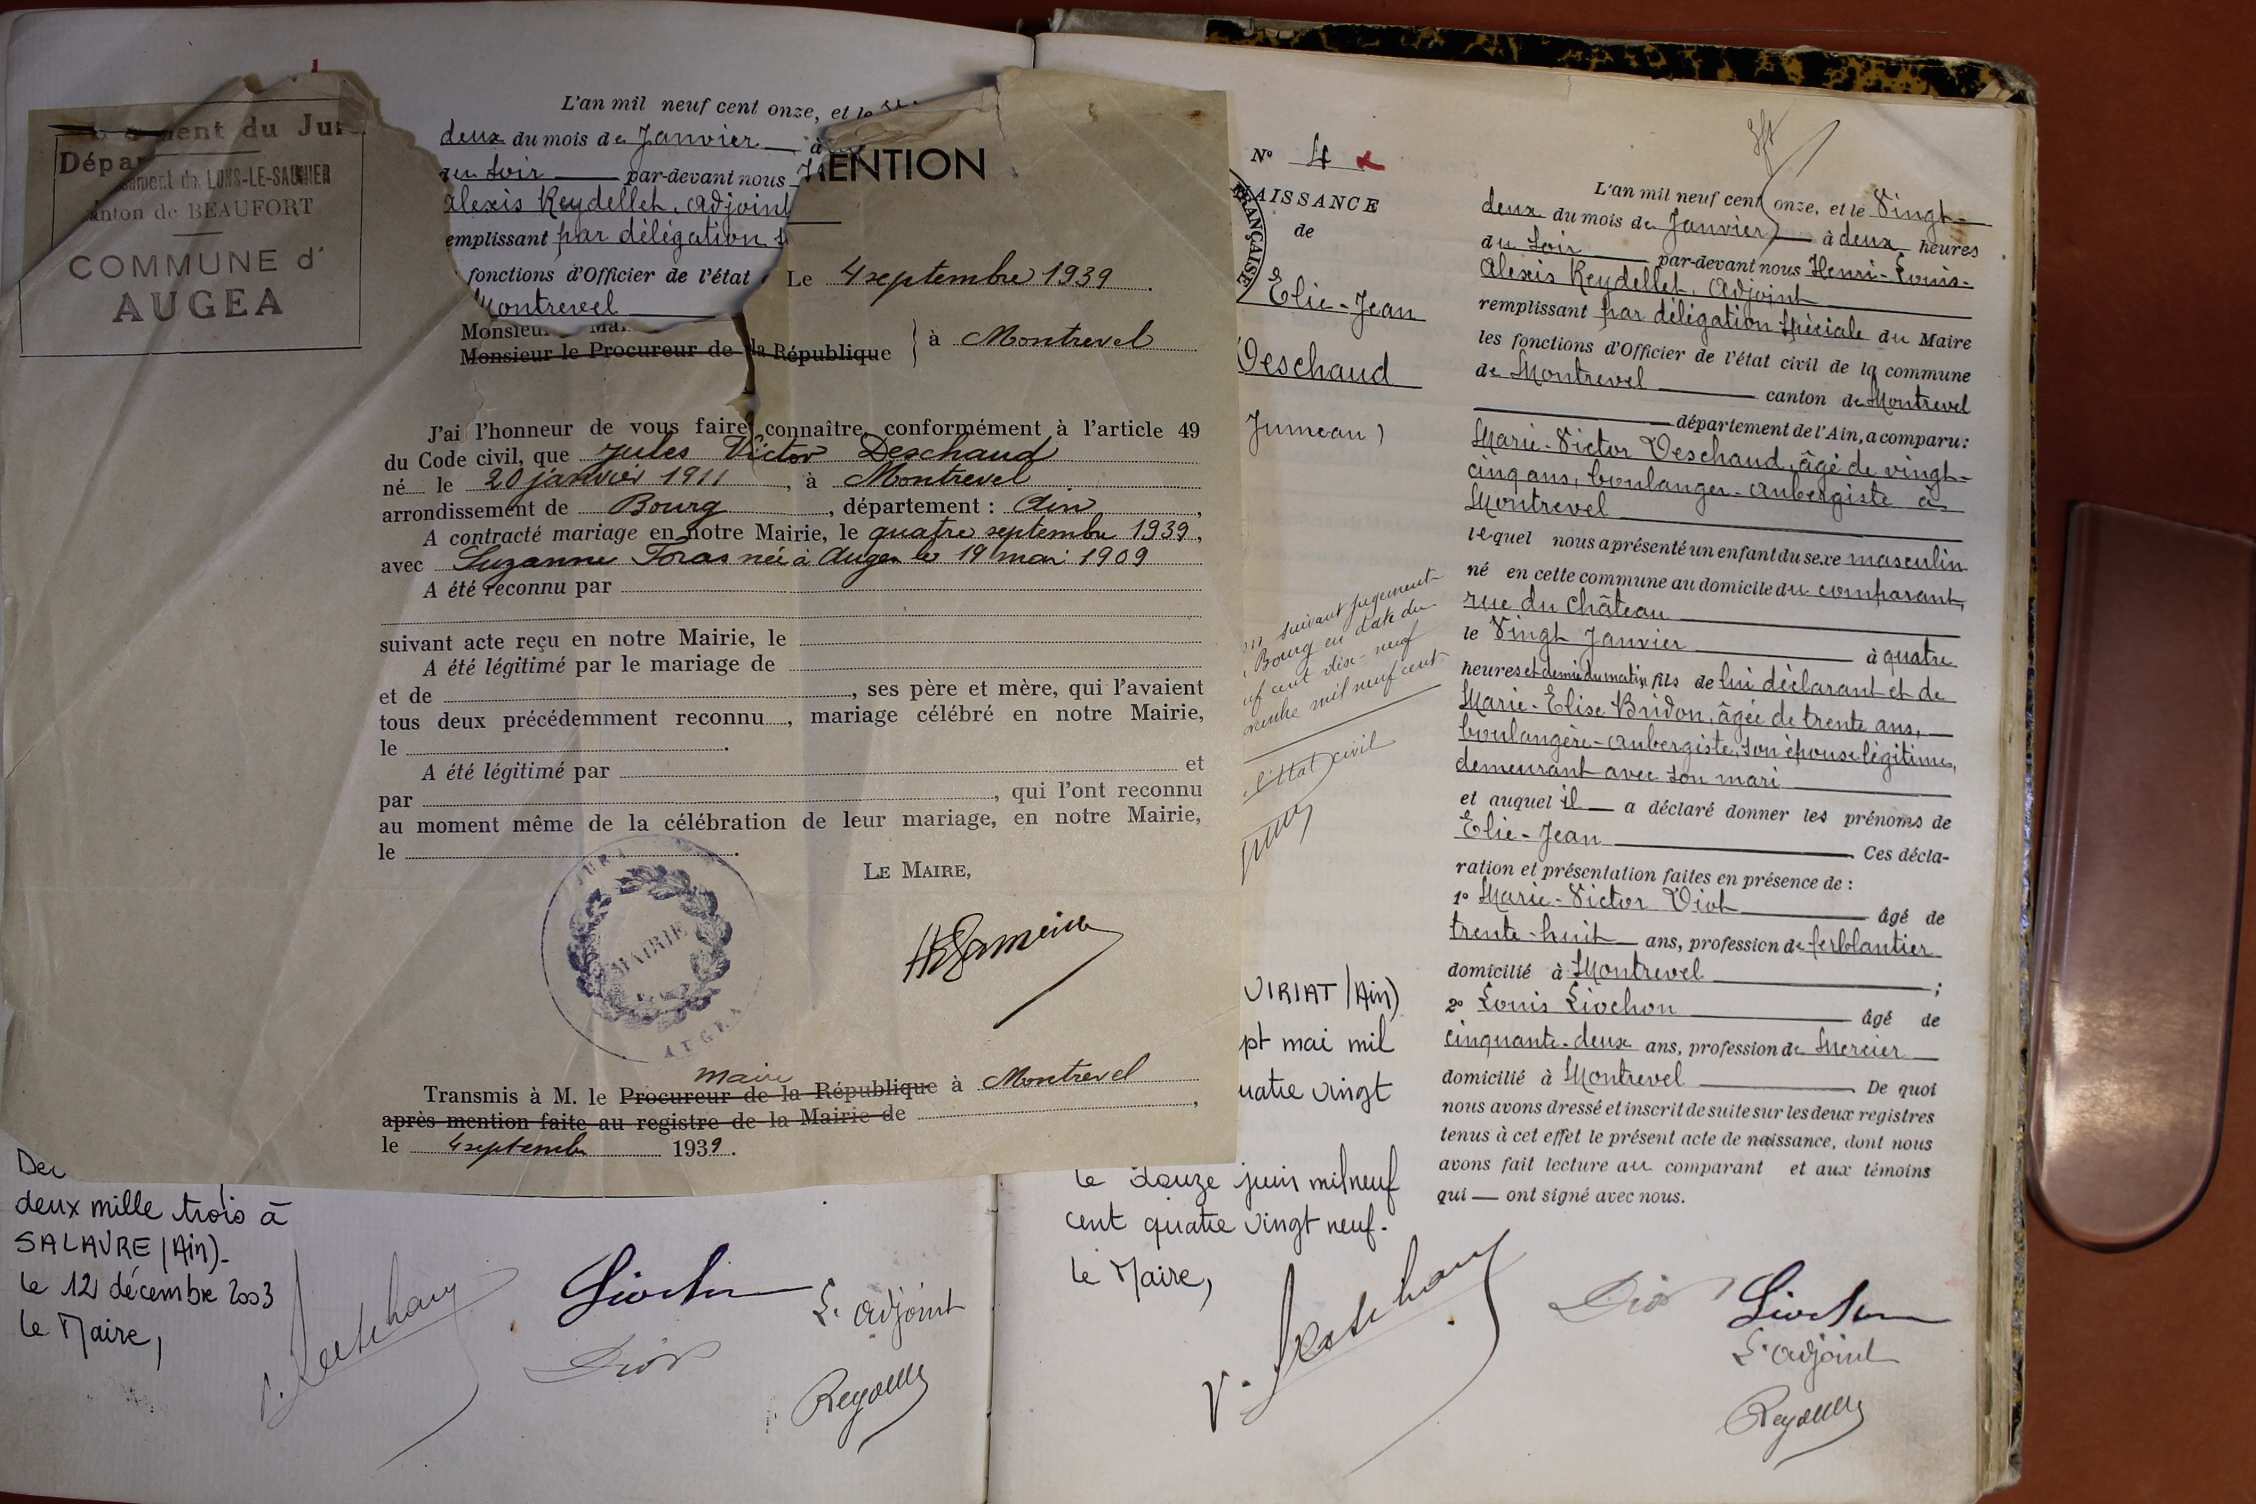 L'an mil neuf cent onze, et le
deux du mois de Janvier — à
du Soir — par-devant nous
Alexis Reydellet, Adjoint
emplissant par délégation
fonctions d'Officier de l'état
Montrevel
ent du Jura
Dépar
LONS-LE-SAUNIER
anton de BEAUFORT
COMMUNE d'
AUGEA
ENTION
Le 4 septembre 1939.
Monsieur
Monsieur le Procureur de la République
à Montrevel
J'ai l'honneur de vous faire connaître, conformément à l'article 49
du Code civil, que Jules Victor Deschaud
né le 20 janvier 1911, à Montrevel
arrondissement de Bourg, département : Ain,
A contracté mariage en notre Mairie, le quatre septembre 1939,
avec Suzanne Foras née à Augea le 19 mai 1909
A été reconnu par
suivant acte reçu en notre Mairie, le
A été légitimé par le mariage de
et de , ses père et mère, qui l'avaient
tous deux précédemment reconnu , mariage célébré en notre Mairie,
le .
A été légitimé par et
par , qui l'ont reconnu
au moment même de la célébration de leur mariage, en notre Mairie,
le .
LE MAIRE,
JURA
MAIRIE
AUGEA
maire
Transmis à M. le Procureur de la République à Montrevel
après mention faite au registre de la Mairie de ,
le 4 septembre 1939.
deux mille trois à
SALAVRE (Ain)-
le 12 décembre 2003
le Maire,
Liochon
Diot
L'adjoint
Reydellet
N° 4
AISSANCE
de
FRANÇAISE
Élie-Jean
Deschaud
Jumeau)
suivant jugement
Bourg en date du
cent dix-neuf
mil neuf cent
l'état civil
VIRIAT (Ain)
pt mai mil
uatre vingt
le douze juin mil neuf
cent quatre vingt neuf.
le Maire,
L'an mil neuf cent onze, et le Vingt-
deux du mois de Janvier — à deux heures
du Soir — par-devant nous Henri-Louis-
Alexis Reydellet, Adjoint
remplissant par délégation Spéciale du Maire
les fonctions d'Officier de l'état civil de la commune
de Montrevel — canton de Montrevel
— département de l'Ain, a comparu :
Marie-Victor Deschaud, âgé de vingt-
cinq ans, boulanger-aubergiste à
Montrevel
lequel nous a présenté un enfant du sexe masculin
né en cette commune au domicile du comparant,
rue du Château
le Vingt Janvier — à quatre
heures et demie du matin fils de lui déclarant et de
Marie-Élise Bridon, âgée de trente ans, —
boulangère-aubergiste, son épouse légitime,
demeurant avec son mari
et auquel il — a déclaré donner les prénoms de
Élie-Jean — Ces décla-
ration et présentation faites en présence de :
1° Marie-Victor Diot — âgé de
trente-huit — ans, profession de ferblantier
domicilié à Montrevel — ;
2° Louis Liochon — âgé de
cinquante-deux ans, profession de Mercier —
domicilié à Montrevel — De quoi
nous avons dressé et inscrit de suite sur les deux registres
tenus à cet effet le présent acte de naissance, dont nous
avons fait lecture au comparant et aux témoins
qui — ont signé avec nous.
V. Deschaud
Diot
Liochon
L'adjoint
Reydellet